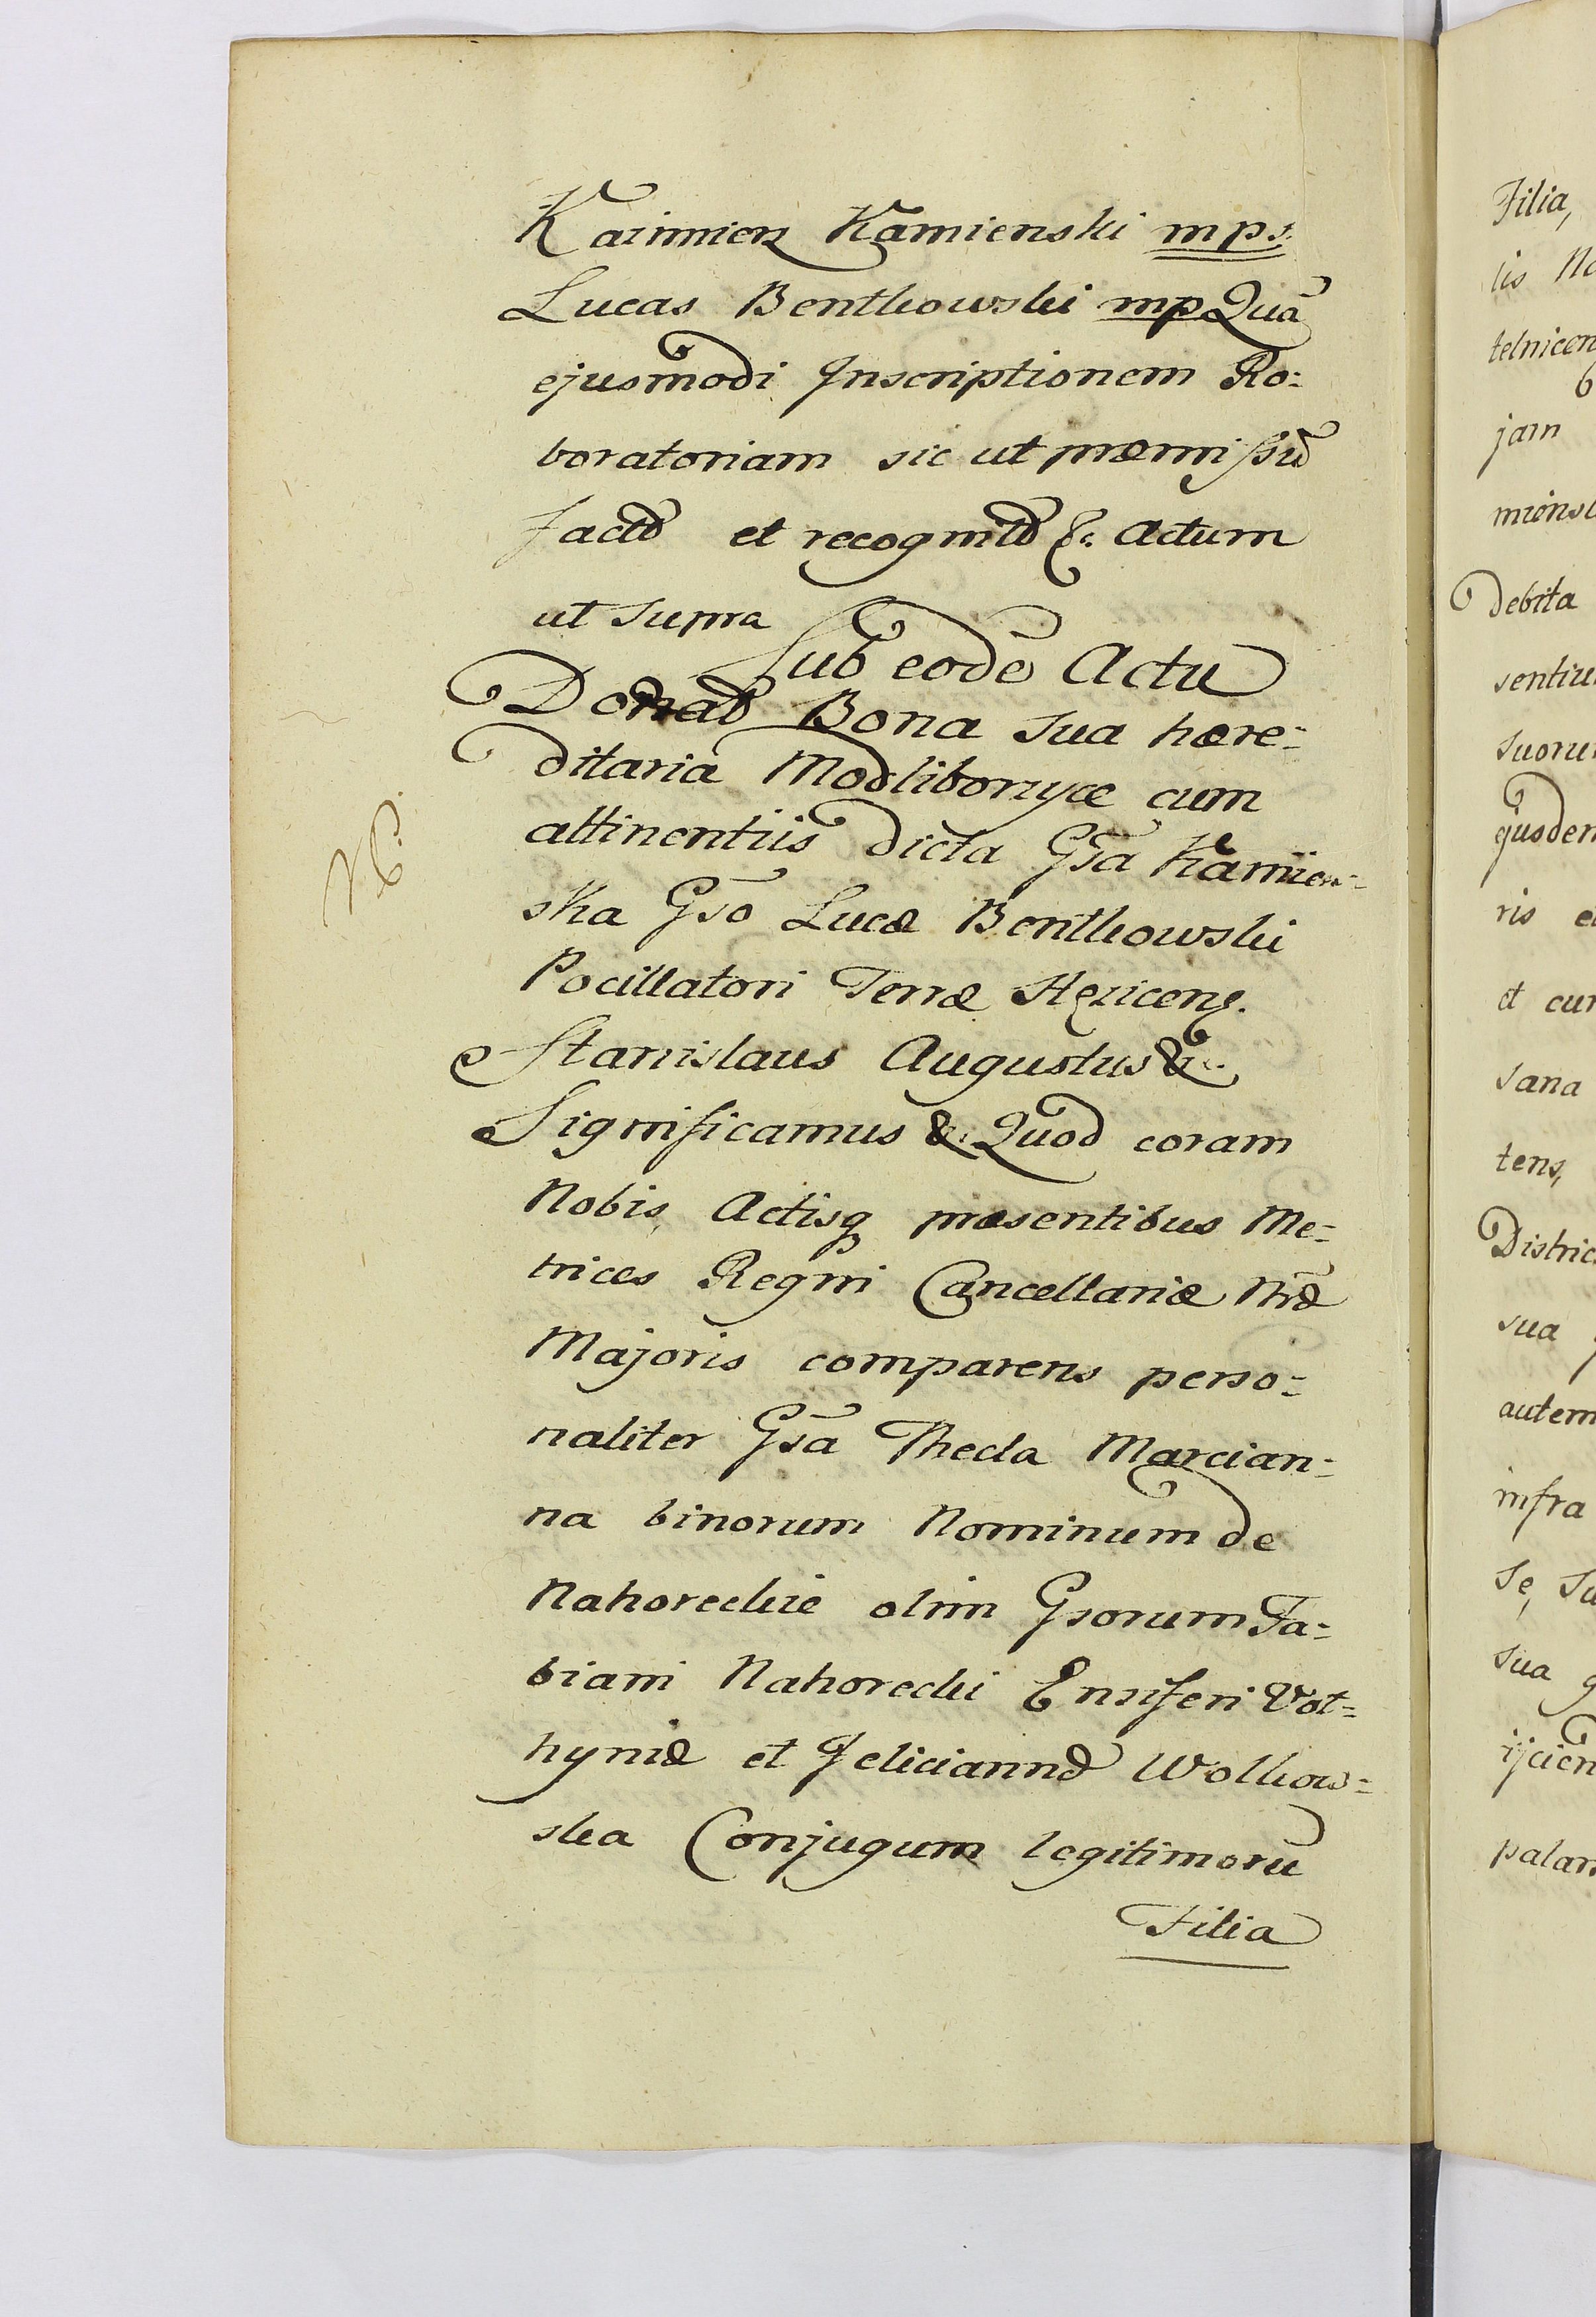 Kazimierz Kamienski mp.s.
Lucas Bentkowski mp Quã
ejusmodi Inscriptionem Ro:
boratoriam sic ut præmissũ
factã et recognitã &. Actum
ut supra
Sub eodẽ Actu
Donat Bona sua hære:
ditaria Modliborzyce cum
attinentiis dicta Gsã Kamien:
ska Gsõ Lucæ Bentkowski
Pocillatori Terræ
Stanislaus Augustus &c.
Significamus &. Quod coram
Nobis, Actisq præsentibus Me:
trices Regni Cancellariæ Nrã
Majoris comparens perso:
naliter Gsã Thecla Marcian:
na binorum Nominum de
Nahoreckie olim Gsorum Fa:
biani Nahorecki Ensiferi Vol:
hyniæ et Feliciannæ Wolkow:
ska Conjugum legitimorũ
Filia
Filia,
lis No
telnicen
jam
miensk
Debita
sentiu
suoru
ejusdem
ris e
et cur
sana
tens,
Distric
sua
autem
infra
se, su
sua q
ijcien
palam